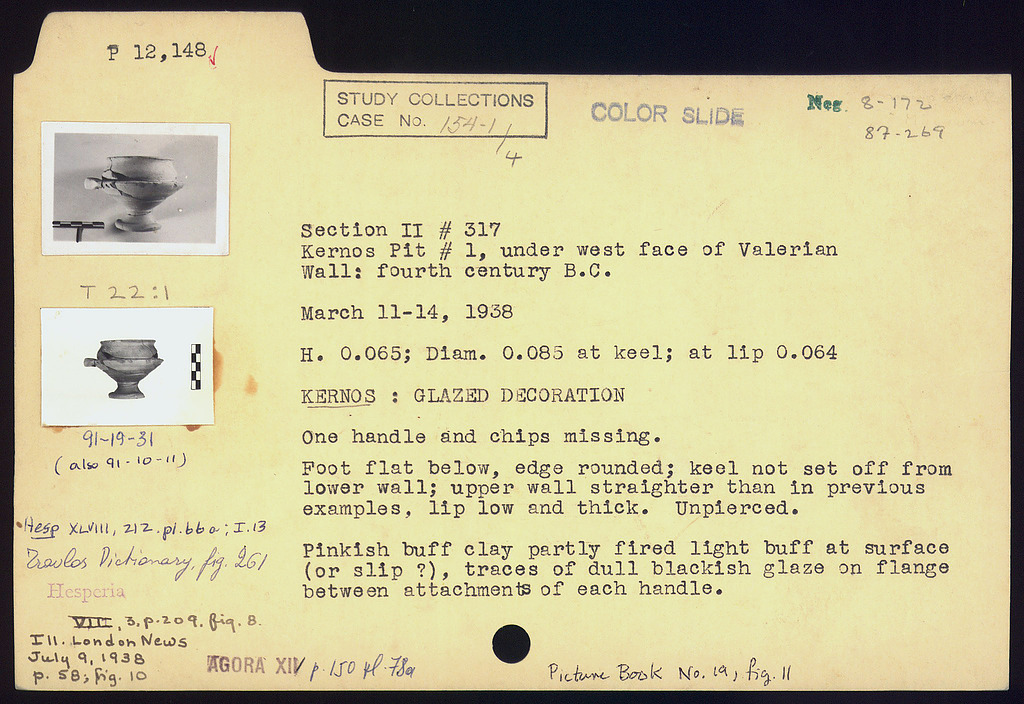 P 12,148
STUDY COLLECTIONS
CASE No. 154-1/4
COLOR SLIDE
Neg. 8-172
87-269
Section II # 317
Kernos Pit # 1, under west face of Valerian
Wall: fourth century B.C.
T 22:1
March 11-14, 1938
H. 0.065; Diam. 0.085 at keel; at lip 0.064
KERNOS : GLAZED DECORATION
One handle and chips missing.
91-19-31
(also 91-10-11)
Foot flat below, edge rounded; keel not set off from
lower wall; upper wall straighter than in previous
examples, lip low and thick. Unpierced.
Hesp XLVIII, 212. pl. 66a; I.13
Travlos Dictionary, fig. 261
Pinkish buff clay partly fired light buff at surface
(or slip ?), traces of dull blackish glaze on flange
between attachments of each handle.
Hesperia
VIII, 3, p. 209, fig. 8.
Ill. London News
July 9, 1938
p. 58; fig. 10
AGORA XIV p. 150 pl. 78a
Picture Book No. 19, fig. 11